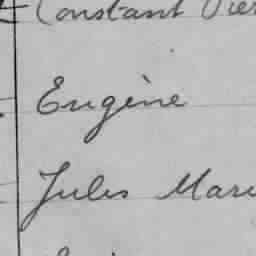 Constant
Eugène
Jules